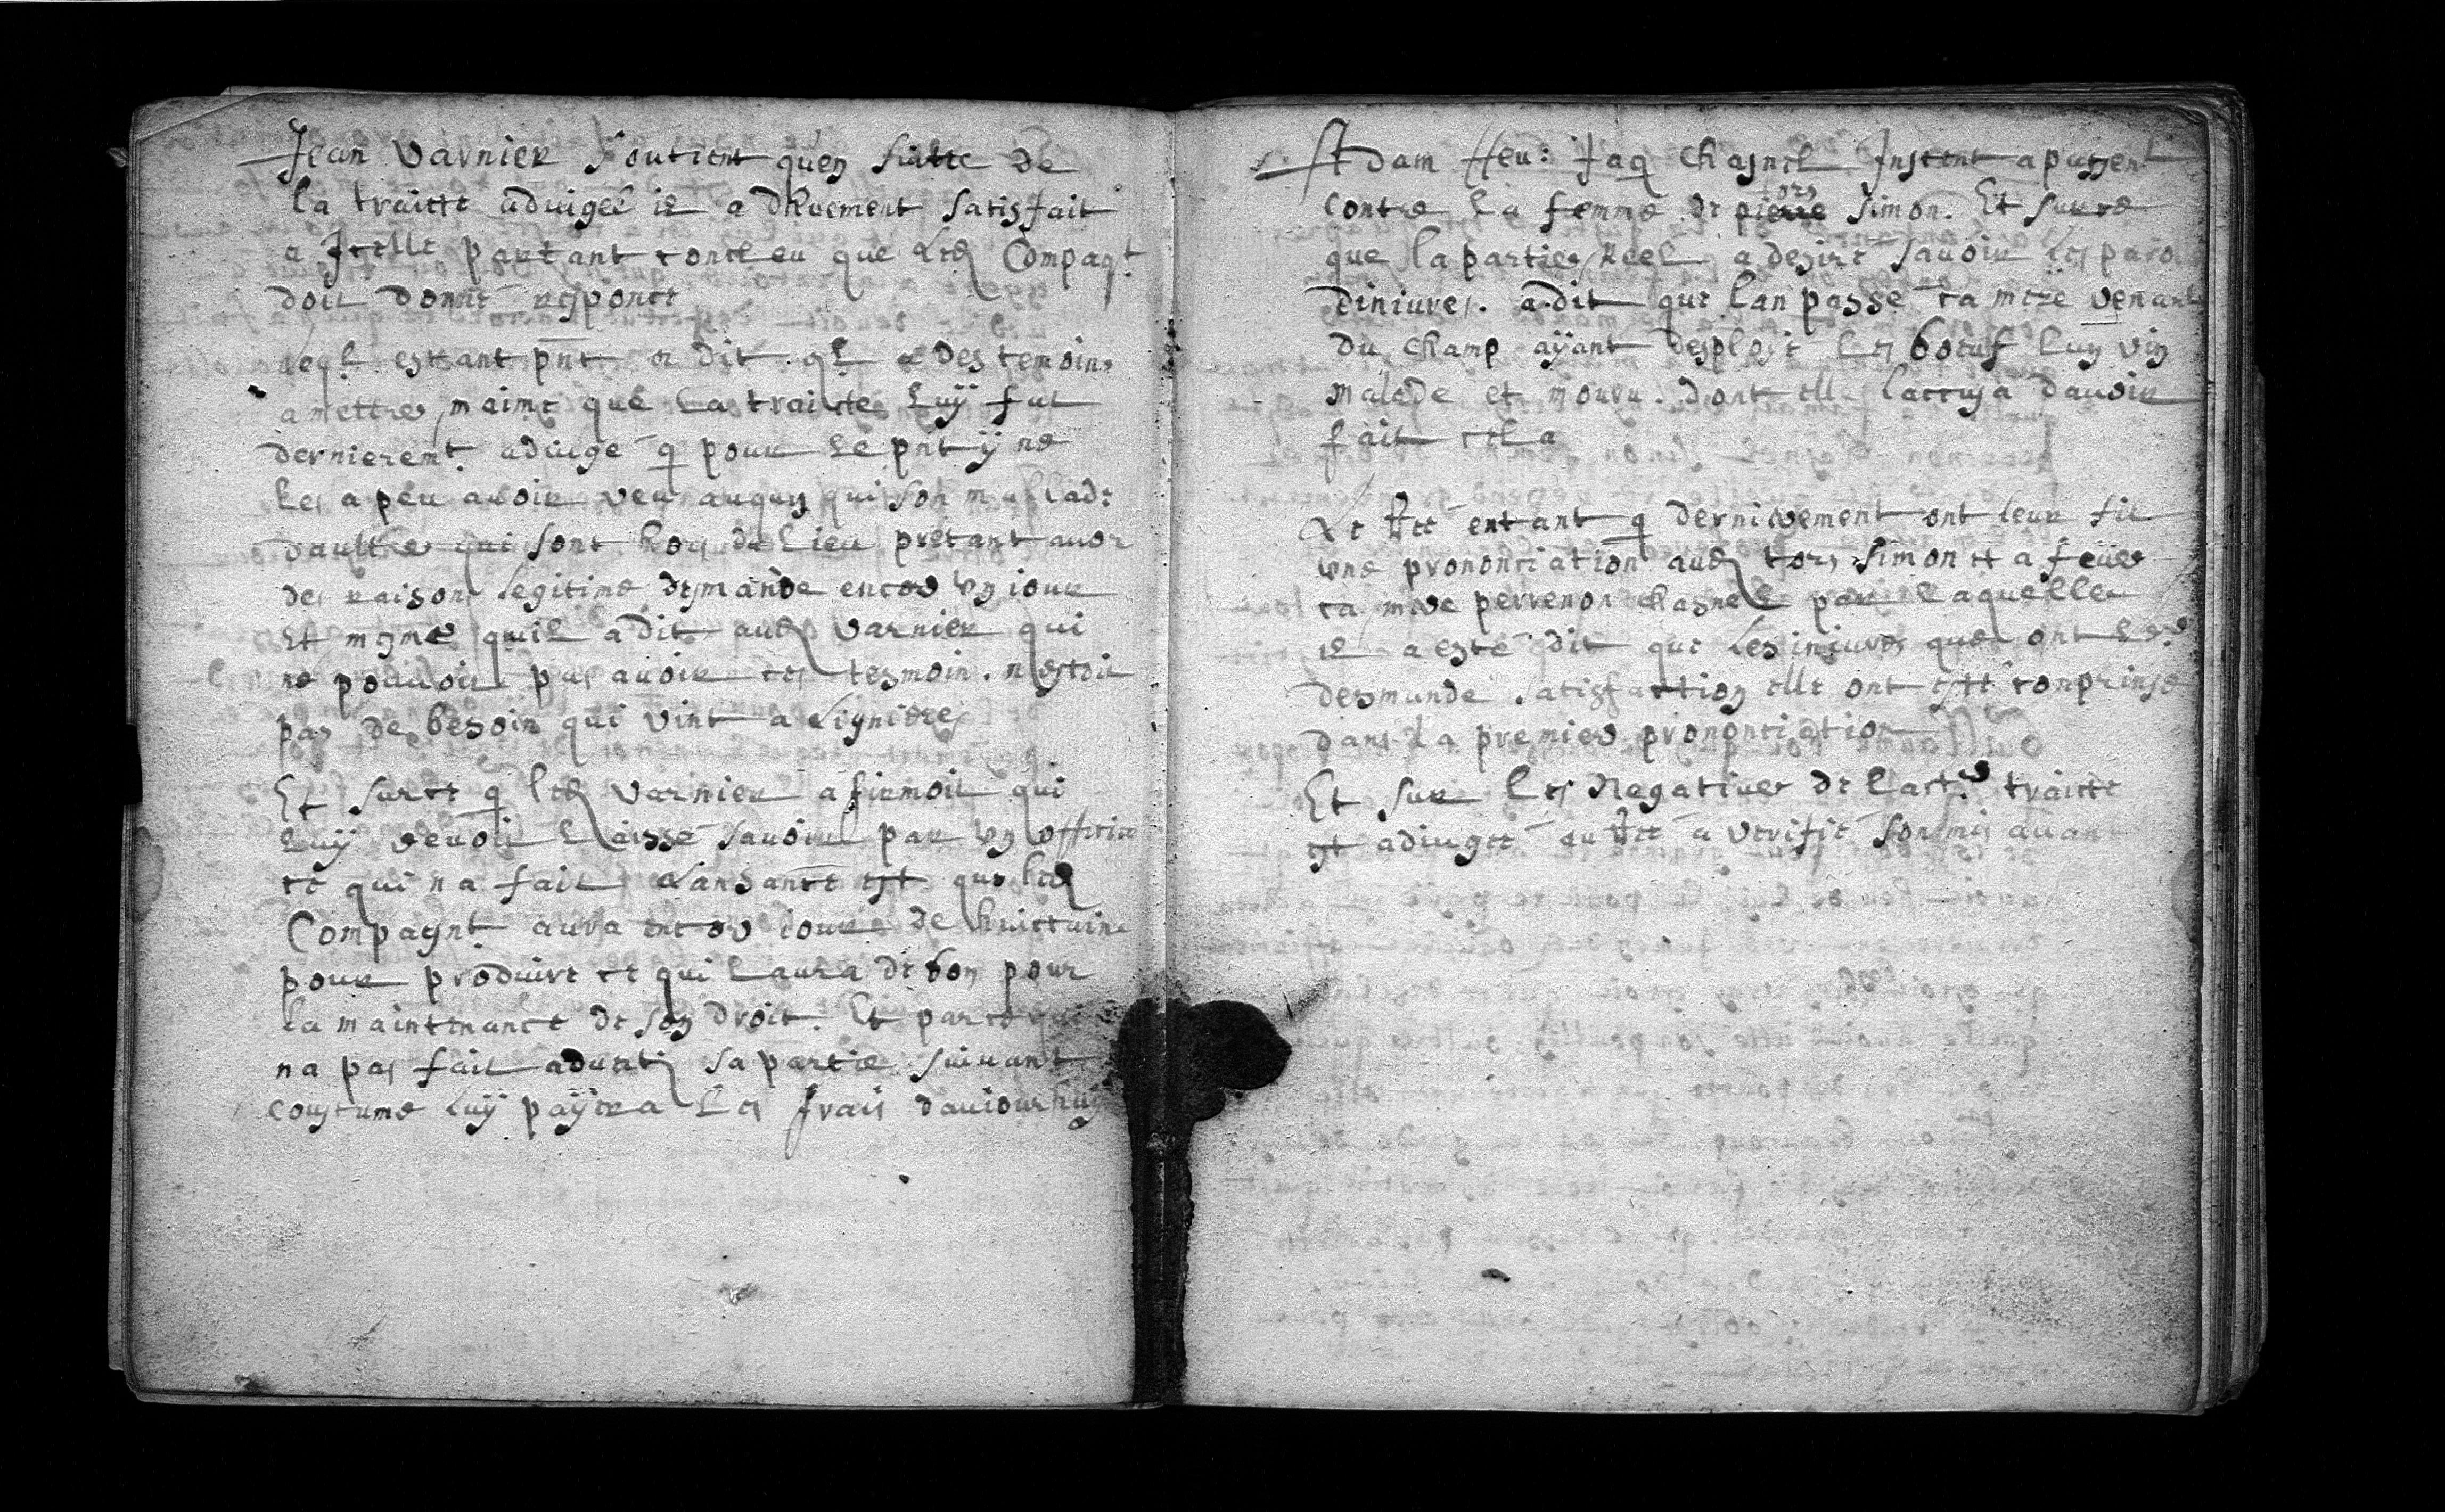 Jean Varnier soutient quen suitte de
la traitte adiugeé il a dhuement satisfait
a Icelle partant concleu que led Compagt
doit donné responce
leql estant pnt a dit ql a des temoins
a mettre, maime que la traitte luÿ fut
dernieremt adiugé q pour le pnt ÿ ne
les a peu avoir veu auquns qui son mallade
daultre qui sont hors du lieu pretant auor
des raisons legitime desmande encore un iour
Et mesme quil a dit aud Varnier qui
ne pouuoit pas auoir ces tesmoin. nestoit
pas de besoin qui vint a Lignieres
Et surce q led Varnier afirmoit qui
luÿ deuoit laissé sauoir par un officier
ce qui na fait Lansance est que led
Compagnt aura encore iour de huictaine
pour produire ce qui laura de bon pour
la maintenance de son droit. Et parce qui
na pas fait aduerti sa partie suiuant
coustume luÿ paÿera les frais dauiourhuÿ
Adam ffeu: Jaq Chasnel Instent a pugent
contre la femme de pierre Tors Simon. Et surce
que la partie Reel a desiré sauoir les paro
diniures. a dit que lan passé ca mere venant
du champ aÿant desploié les boeuf lun vin
malade et mouru. dont elle laccusa dauoir
fait cela
Le Act entant q dernierement ont leur fit
une prononciation aud Tors Simon et a feue
ca mere pervenon Chasnel par laquelle
il a esté dit que les iniures que ont
desmande satisfaction elle ont esté conprinse
dans la premiere prononciation
Et sur les Negatiues de lact.r traitte
est adiugee au Act a verifié son mis auant